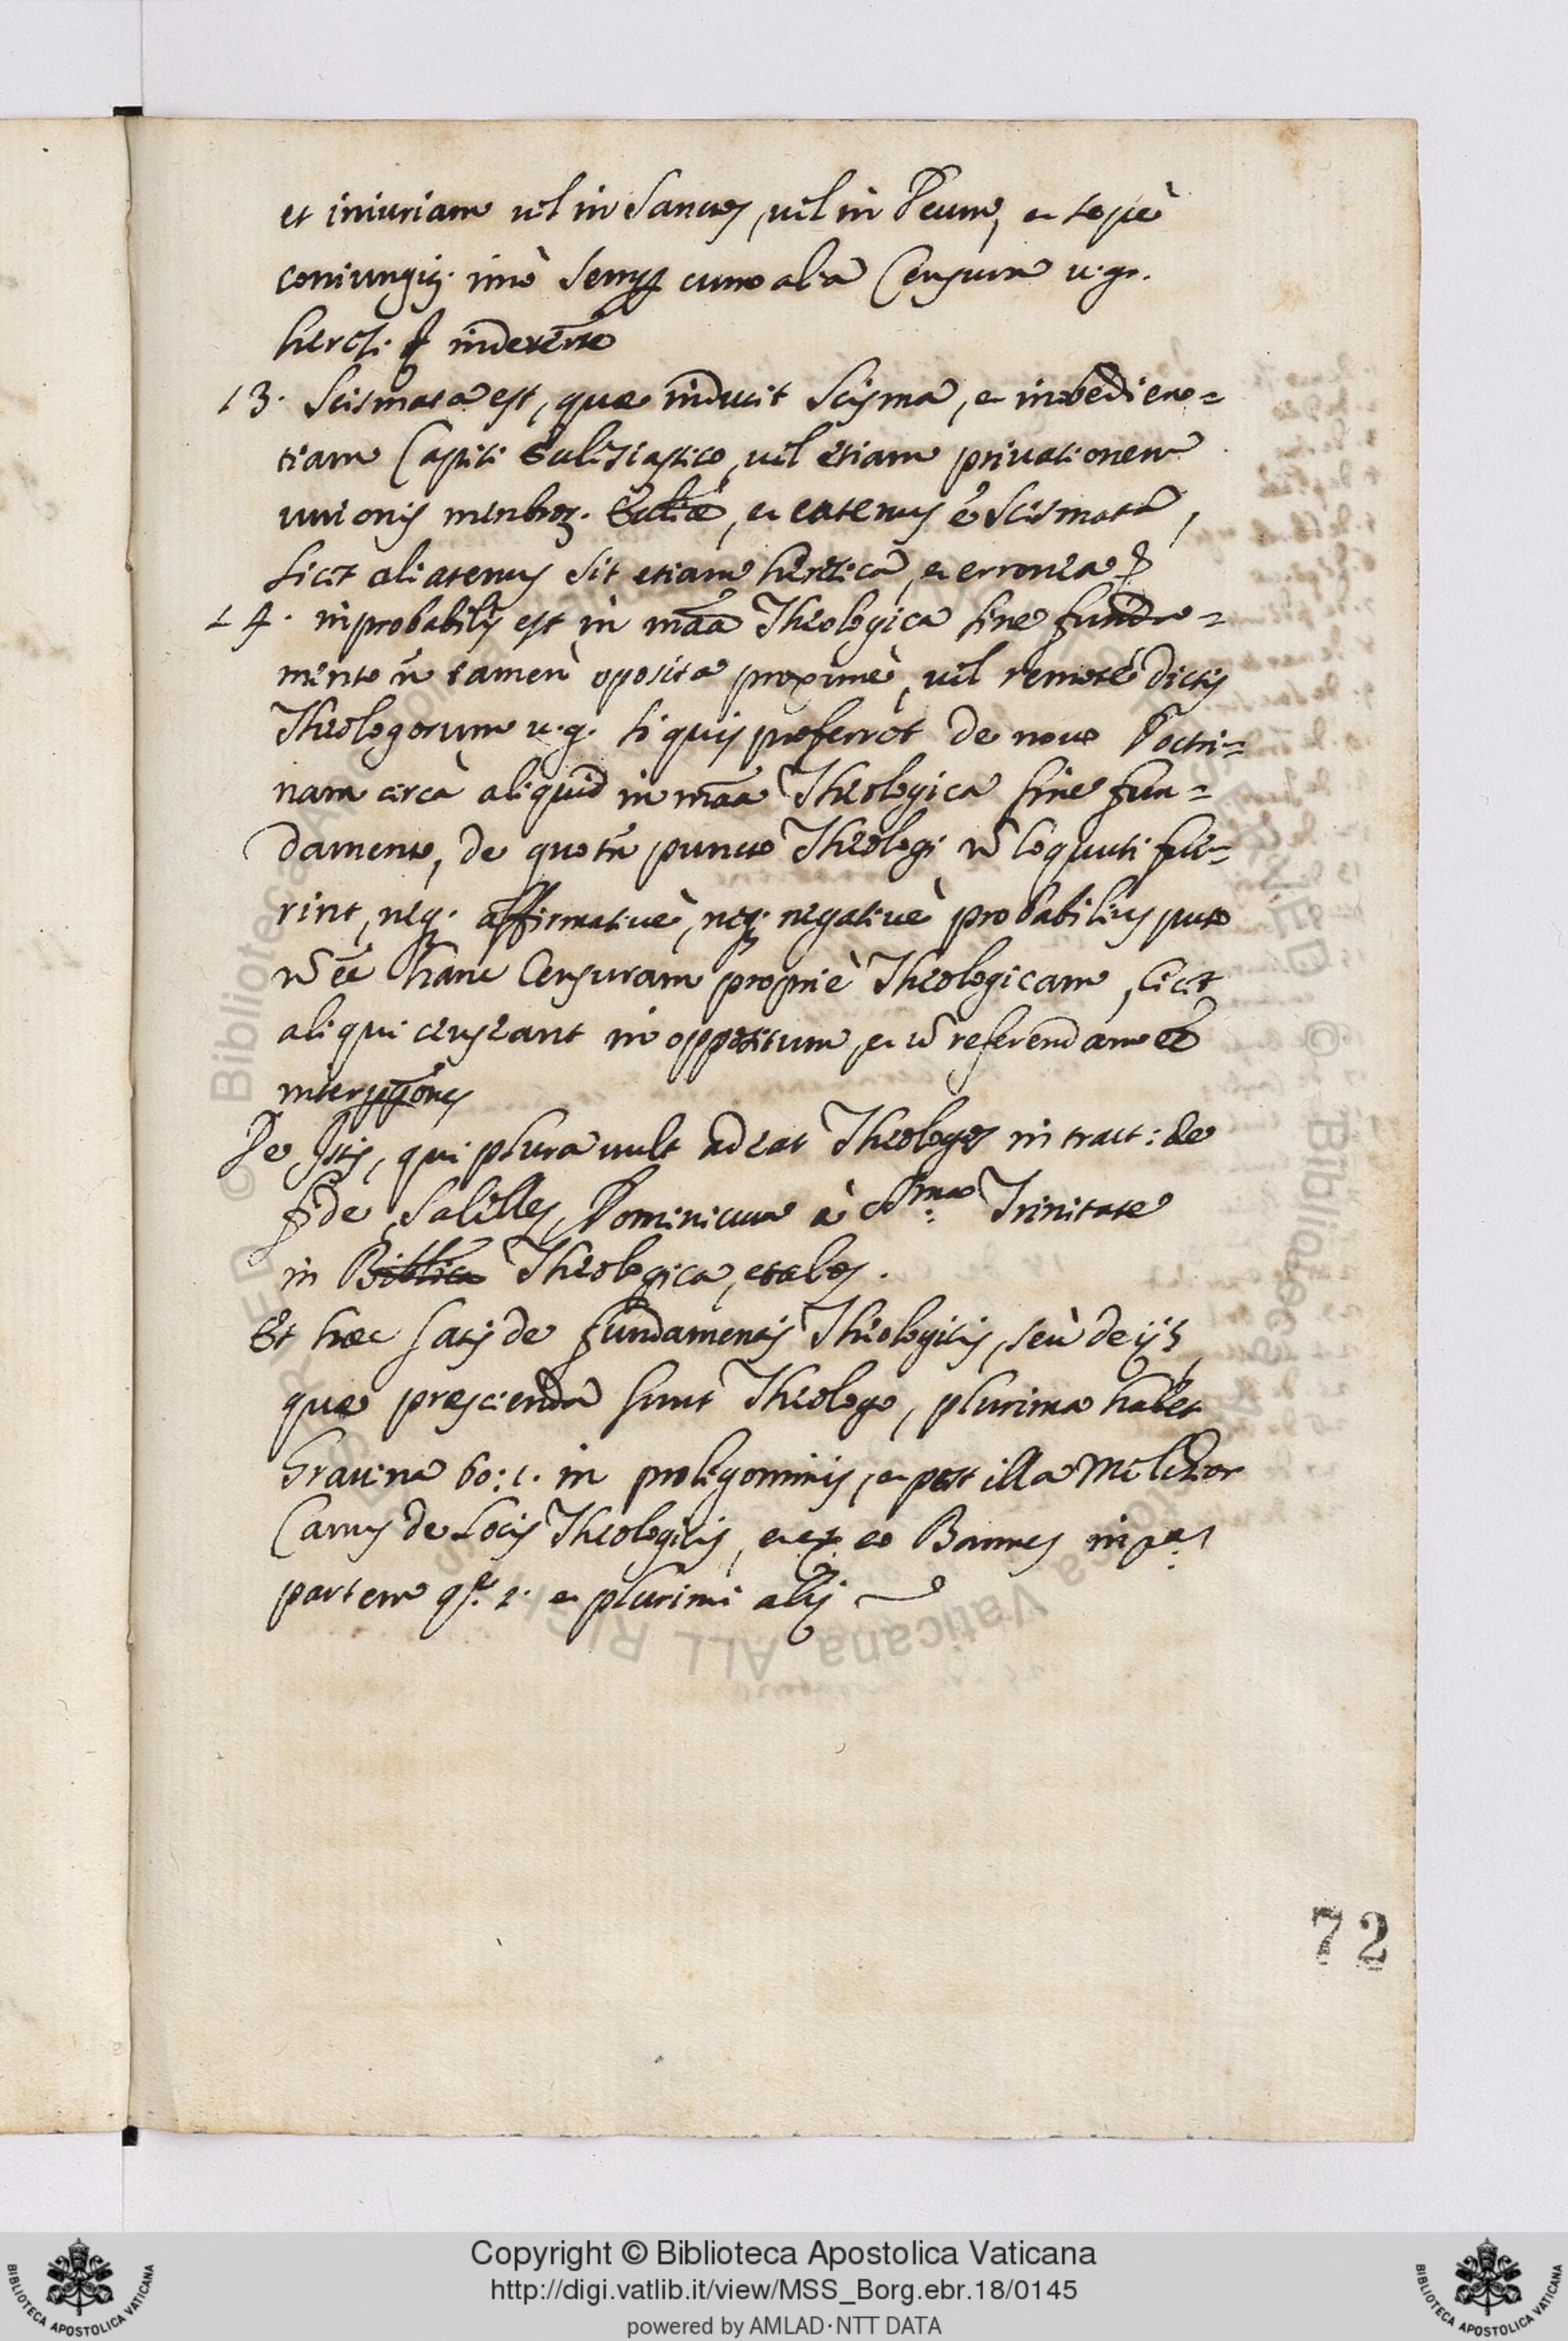 et iniuriam vel in Sanctos, vel in Deum, et sepè
coniungit. imò semp cum alia Censura v.g.
heresi
13. Scismata est, quæ inducit Scisma, et inobedien=
tiam Capiti Eccleziastico, vel etiam privationem
unionis menbroȝ. Ecclîæ, et eatenus ê Scismata,
licet aliatenus sit etiam heretica, et erronea
14. inprobabilis est in mãa Theologica sine funda=
mento ñ tamen oposita proximè, vel remotè dictis
Theologorum v.g. si quis proferret de novo Doctri=
nam circà aliquid in mãa Theologica sine fun=
damento, de quo tñ puncto Theologi ñ loquuti fue=
rint, neq. affirmativè, neq. negativè probabilius puto
ñ eê hanc Censuram propriè Theologicam, licet
aliqui censeant in oppositum, et ñ referendam
De istis, qui plura vult adeat Theologos in tract: de
fide Salilles, Dominicum à SSma: Trinitate
in Biblîca Theologica, et alios.
Et hæc satis de fundamentis Theologicis, seù de ijs,
quæ prescienda sunt Theologo, plurima habet
Gravina to: 1. in proligominis, et post illa Melchior
Canus de Locis Theologicis, et ex eo Bannes in pa: 1
partem q. 1. et plurimi alij
72
Copyright © Biblioteca Apostolica Vaticana
http://digi.vatlib.it/view/MSS_Borg.ebr.18/0145
powered by AMLAD·NTT DATA
BIBLIOTECA APOSTOLICA VATICANA
BIBLIOTECA APOSTOLICA VATICANA